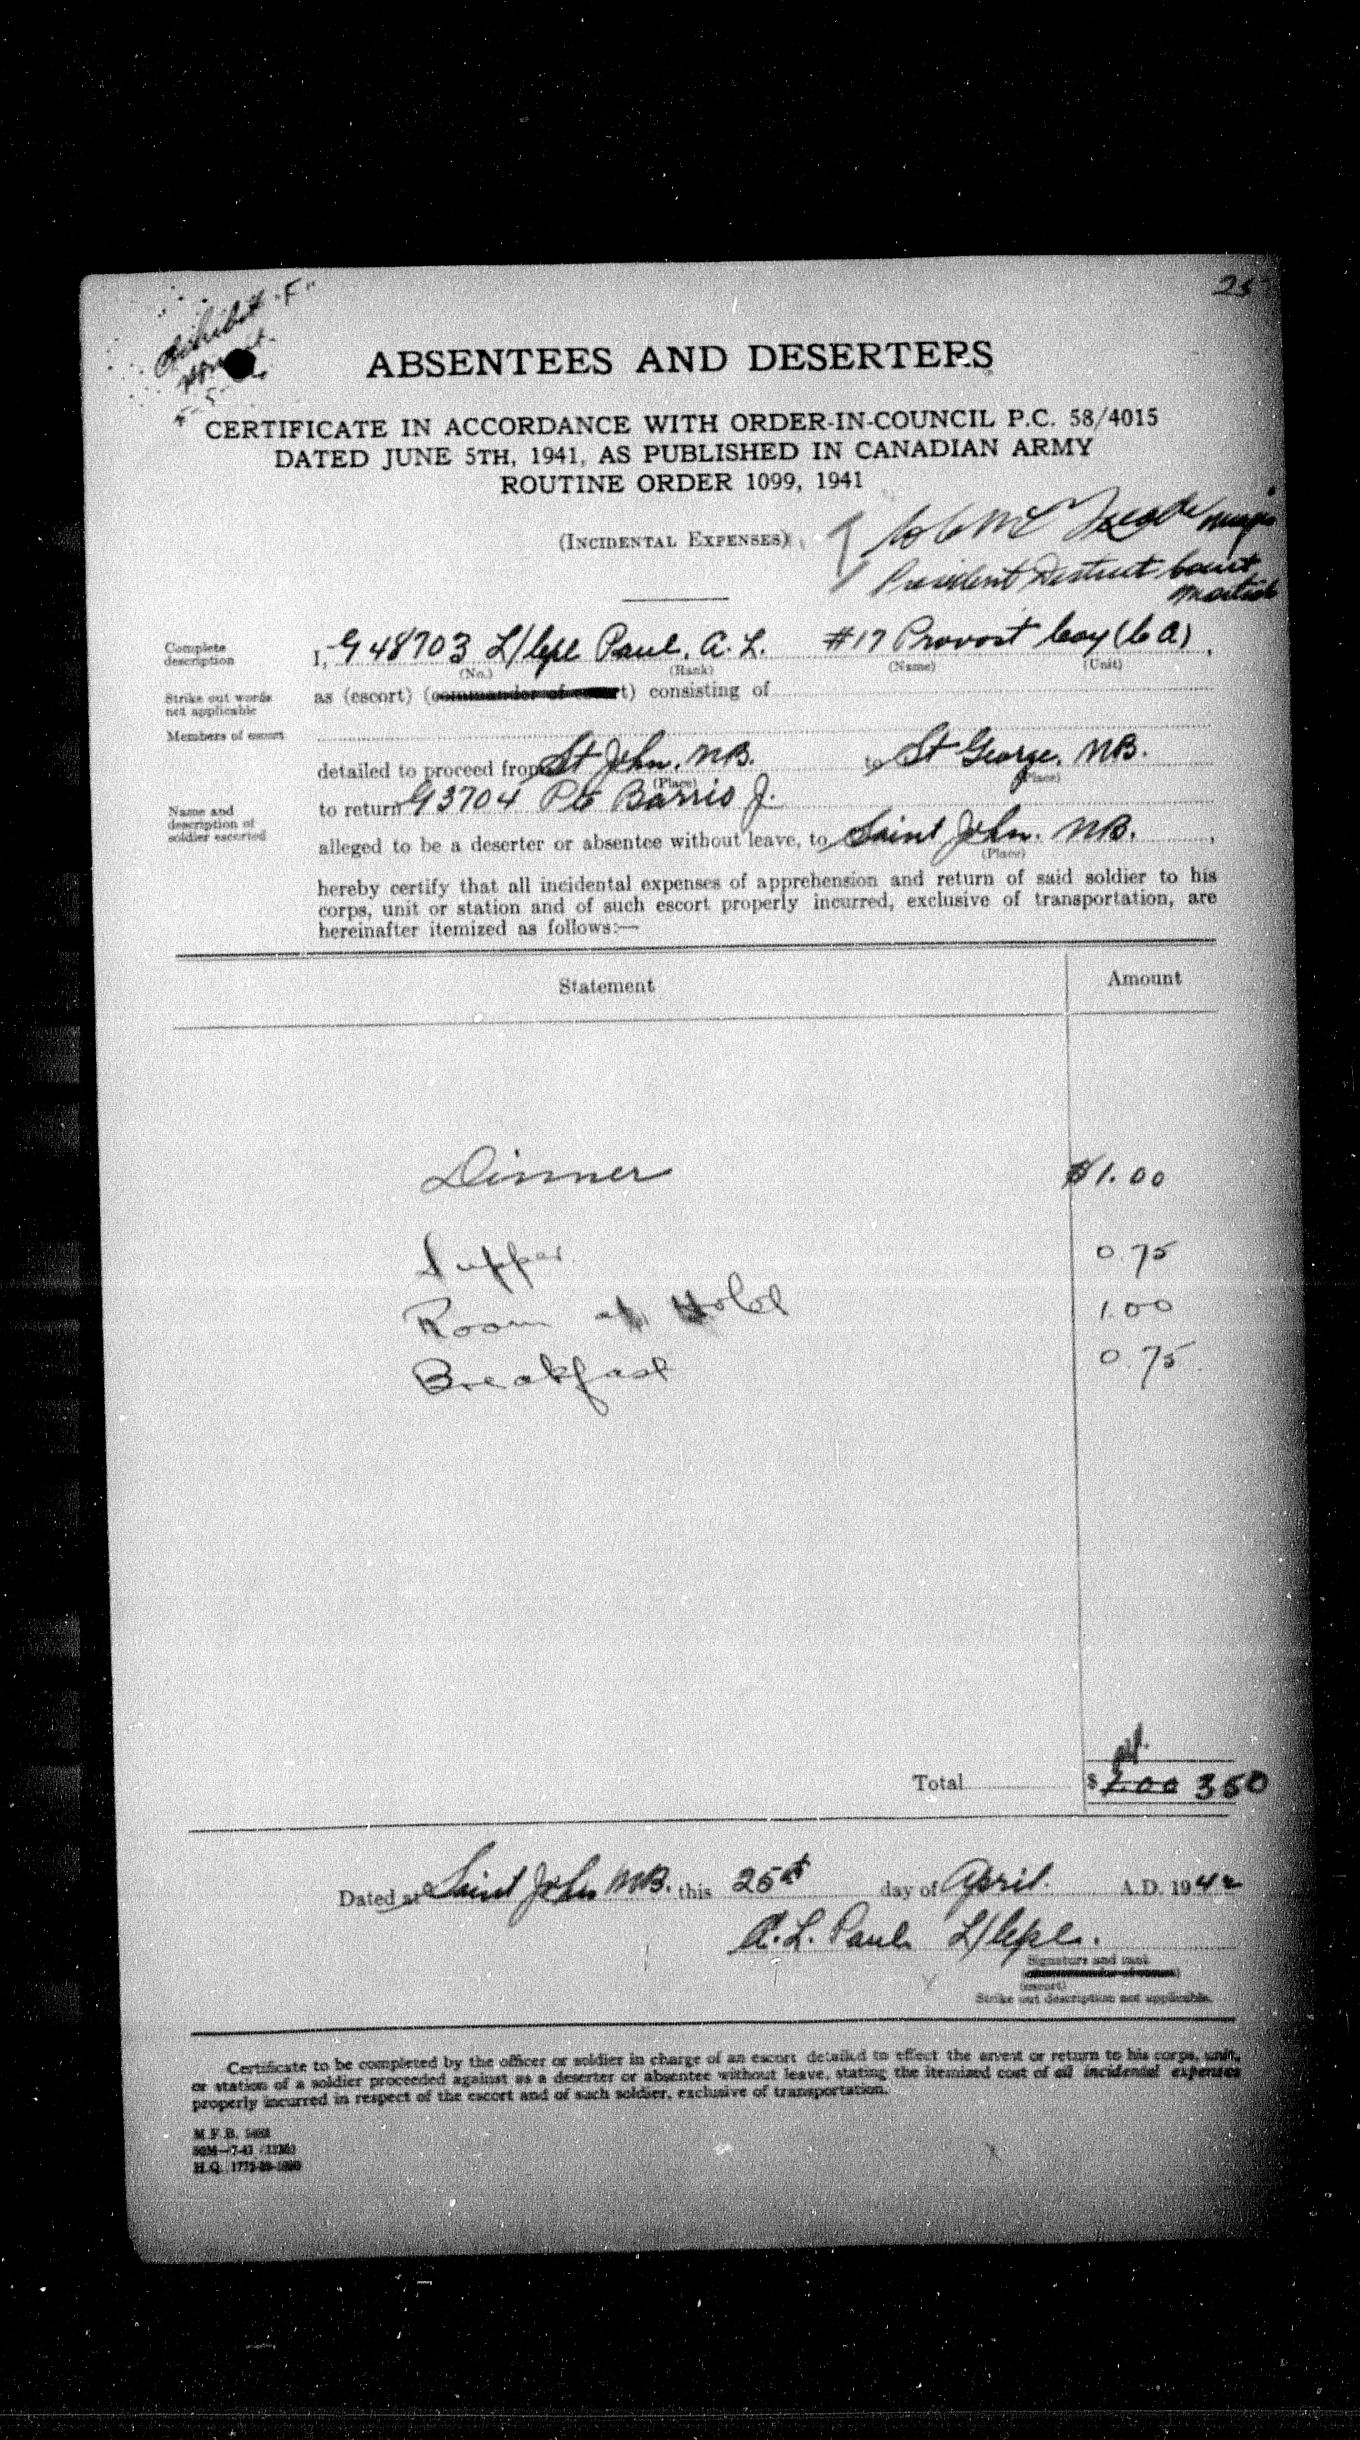 Exhibit "F"
25
ABSENTEES AND DESERTERS
CERTIFICATE IN ACCORDANCE WITH ORDER-IN-COUNCIL P.C. 58/4015
DATED JUNE 5TH, 1941, AS PUBLISHED IN CANADIAN ARMY
ROUTINE ORDER 1099, 1941
(INCIDENTAL EXPENSES)
Major
President District Court
Martial
Complete
description
I, G 48703 L/Cpl Paul, A. L. #17 Provost Coy (C A),
(No.) (Rank) (Name) (Unit)
Strike out words
not applicable
as (escort) (commander of escort) consisting of
Members of escort
detailed to proceed from St John, NB. to St George, NB.
(Place) (Place)
Name and
description of
soldier escorted
to return G3704 Pte Barrio J.
alleged to be a deserter or absentee without leave, to Saint John. NB.,
(Place)
hereby certify that all incidental expenses of apprehension and return of said soldier to his
corps, unit or station and of such escort properly incurred, exclusive of transportation, are
hereinafter itemized as follows:—
Statement Amount
Dinner $1.00
Supper 0.75
Room at Hotel 1.00
Breakfast 0.75
Total $ 3 50
Dated at Saint John NB. this 25th day of April. A.D. 1942
A. L. Paul L/Cpl.
Signature and rank
(commander of escort)
(escort)
Strike out description not applicable.
Certificate to be completed by the officer or soldier in charge of an escort detailed to effect the arrest or return to his corps, unit,
or station of a soldier proceeded against as a deserter or absentee without leave, stating the itemized cost of all incidental expenses
properly incurred in respect of the escort and of such soldier, exclusive of transportation.
M.F.B.
H.Q.